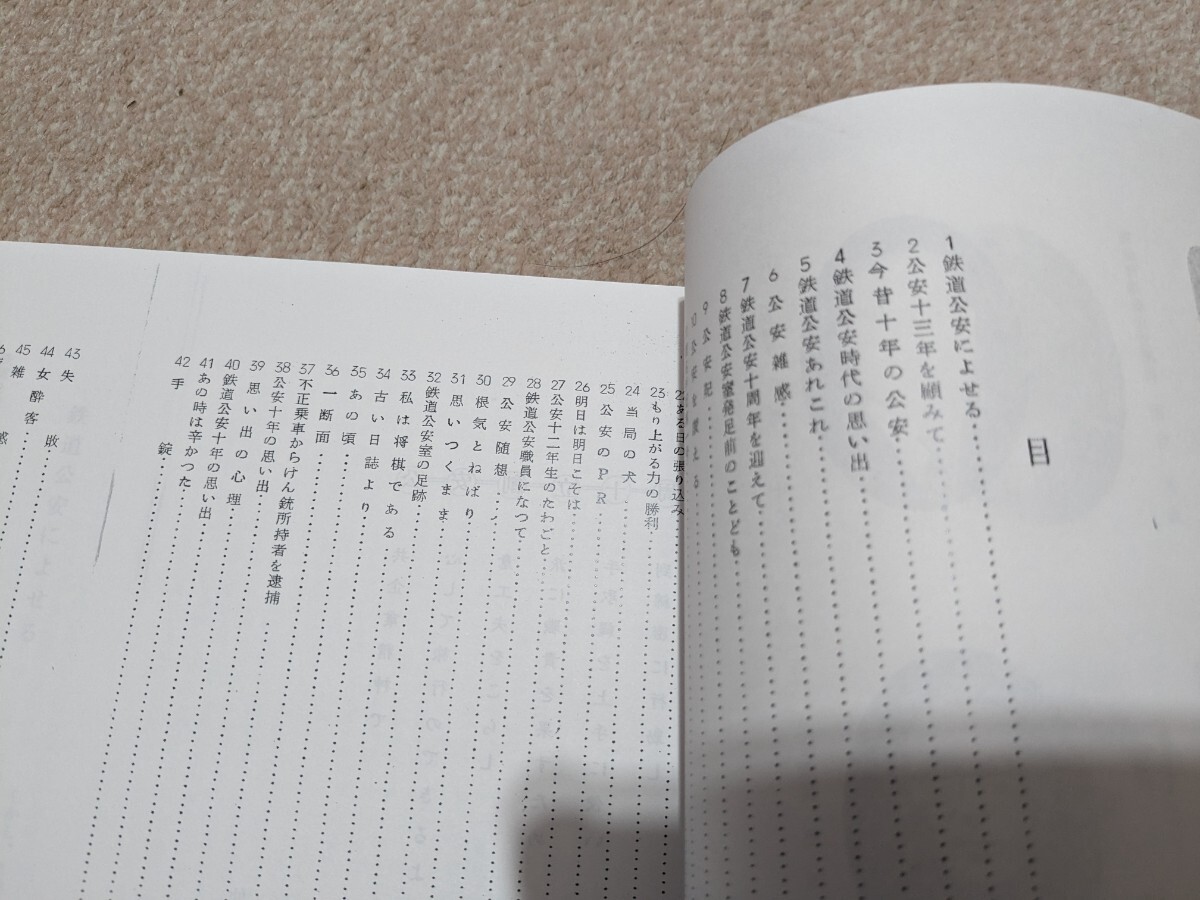 目
1 鉄道公安によせる
2 公安十三年を顧みて
3 今昔十年の公安
4 鉄道公安時代の思い出
5 鉄道公安あれこれ
6 公安雑感
7 鉄道公安十周年を迎えて
8 鉄道公安室発足前のことども
9 公安記
10 公安を
22 ある日の張り込み
23 もり上がる力の勝利
24 当局の犬
25 公安のPR
26 明日は明日こそは
27 公安十二年生のたわごと
28 鉄道公安職員になつて
29 公安随想
30 根気とねばり
31 思いつくまま
32 鉄道公安室の足跡
33 私は将棋である
34 古い日誌より
35 あの頃
36 一断面
37 不正乗車からけん銃所持者を逮捕
38 公安十年の思い出
39 思い出の心理
40 鉄道公安十年の思い出
41 あの時は辛かつた
42 手錠
43 失敗
44 女酔客
45 雑感